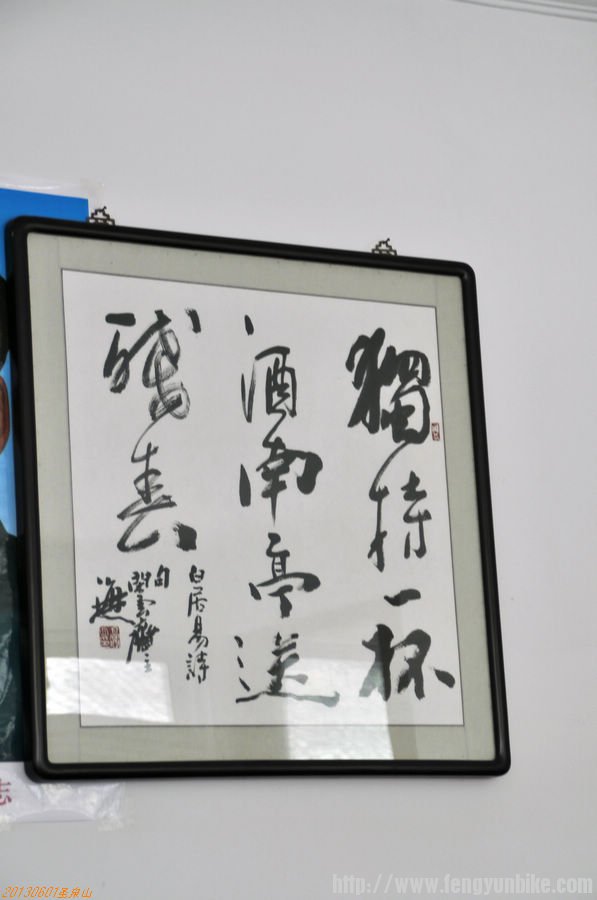 獨持一杯
酒南亭送
殘春
白居易詩
句
志
20130601圣泉山
http://www.fengyunbike.com